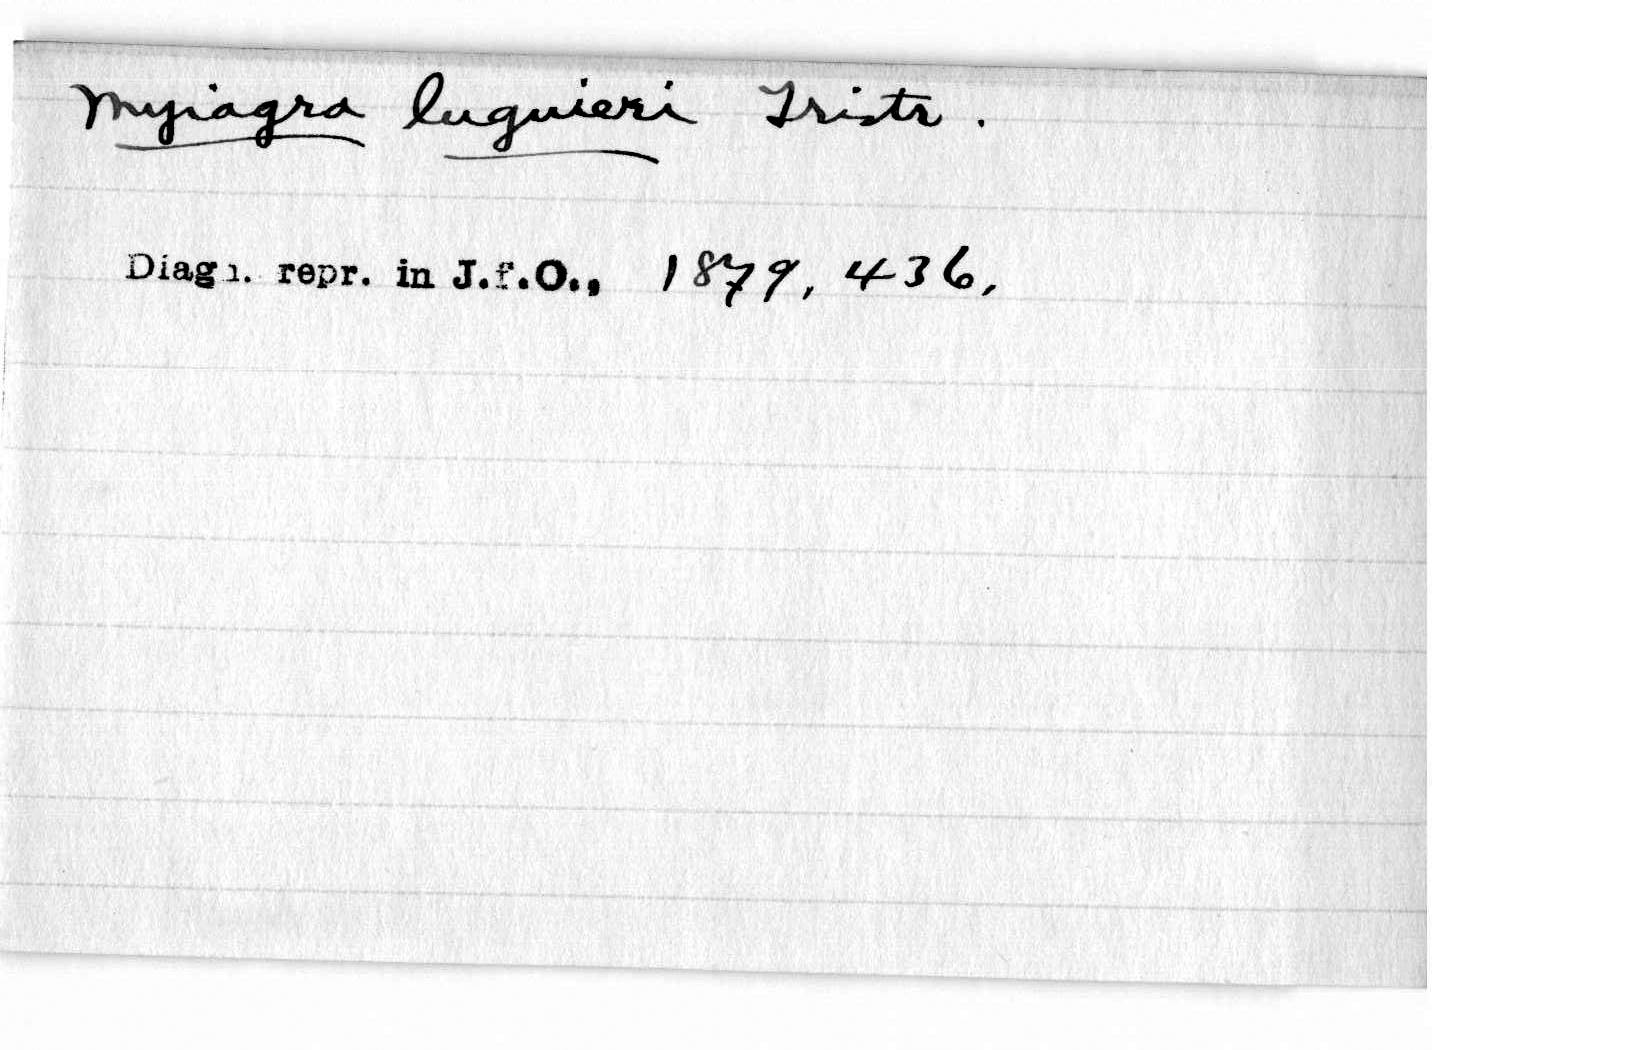 Myiagra luguieri Tristr.
Diagn. repr. in J.f.O., 1879, 436,